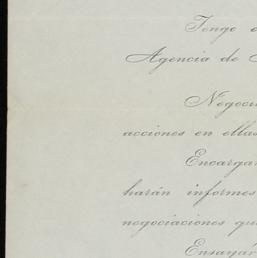 Tengo
Agencia de
Negoci
acciones en ellas
Encargar
harán informes
negociaciones qu
Ensayar